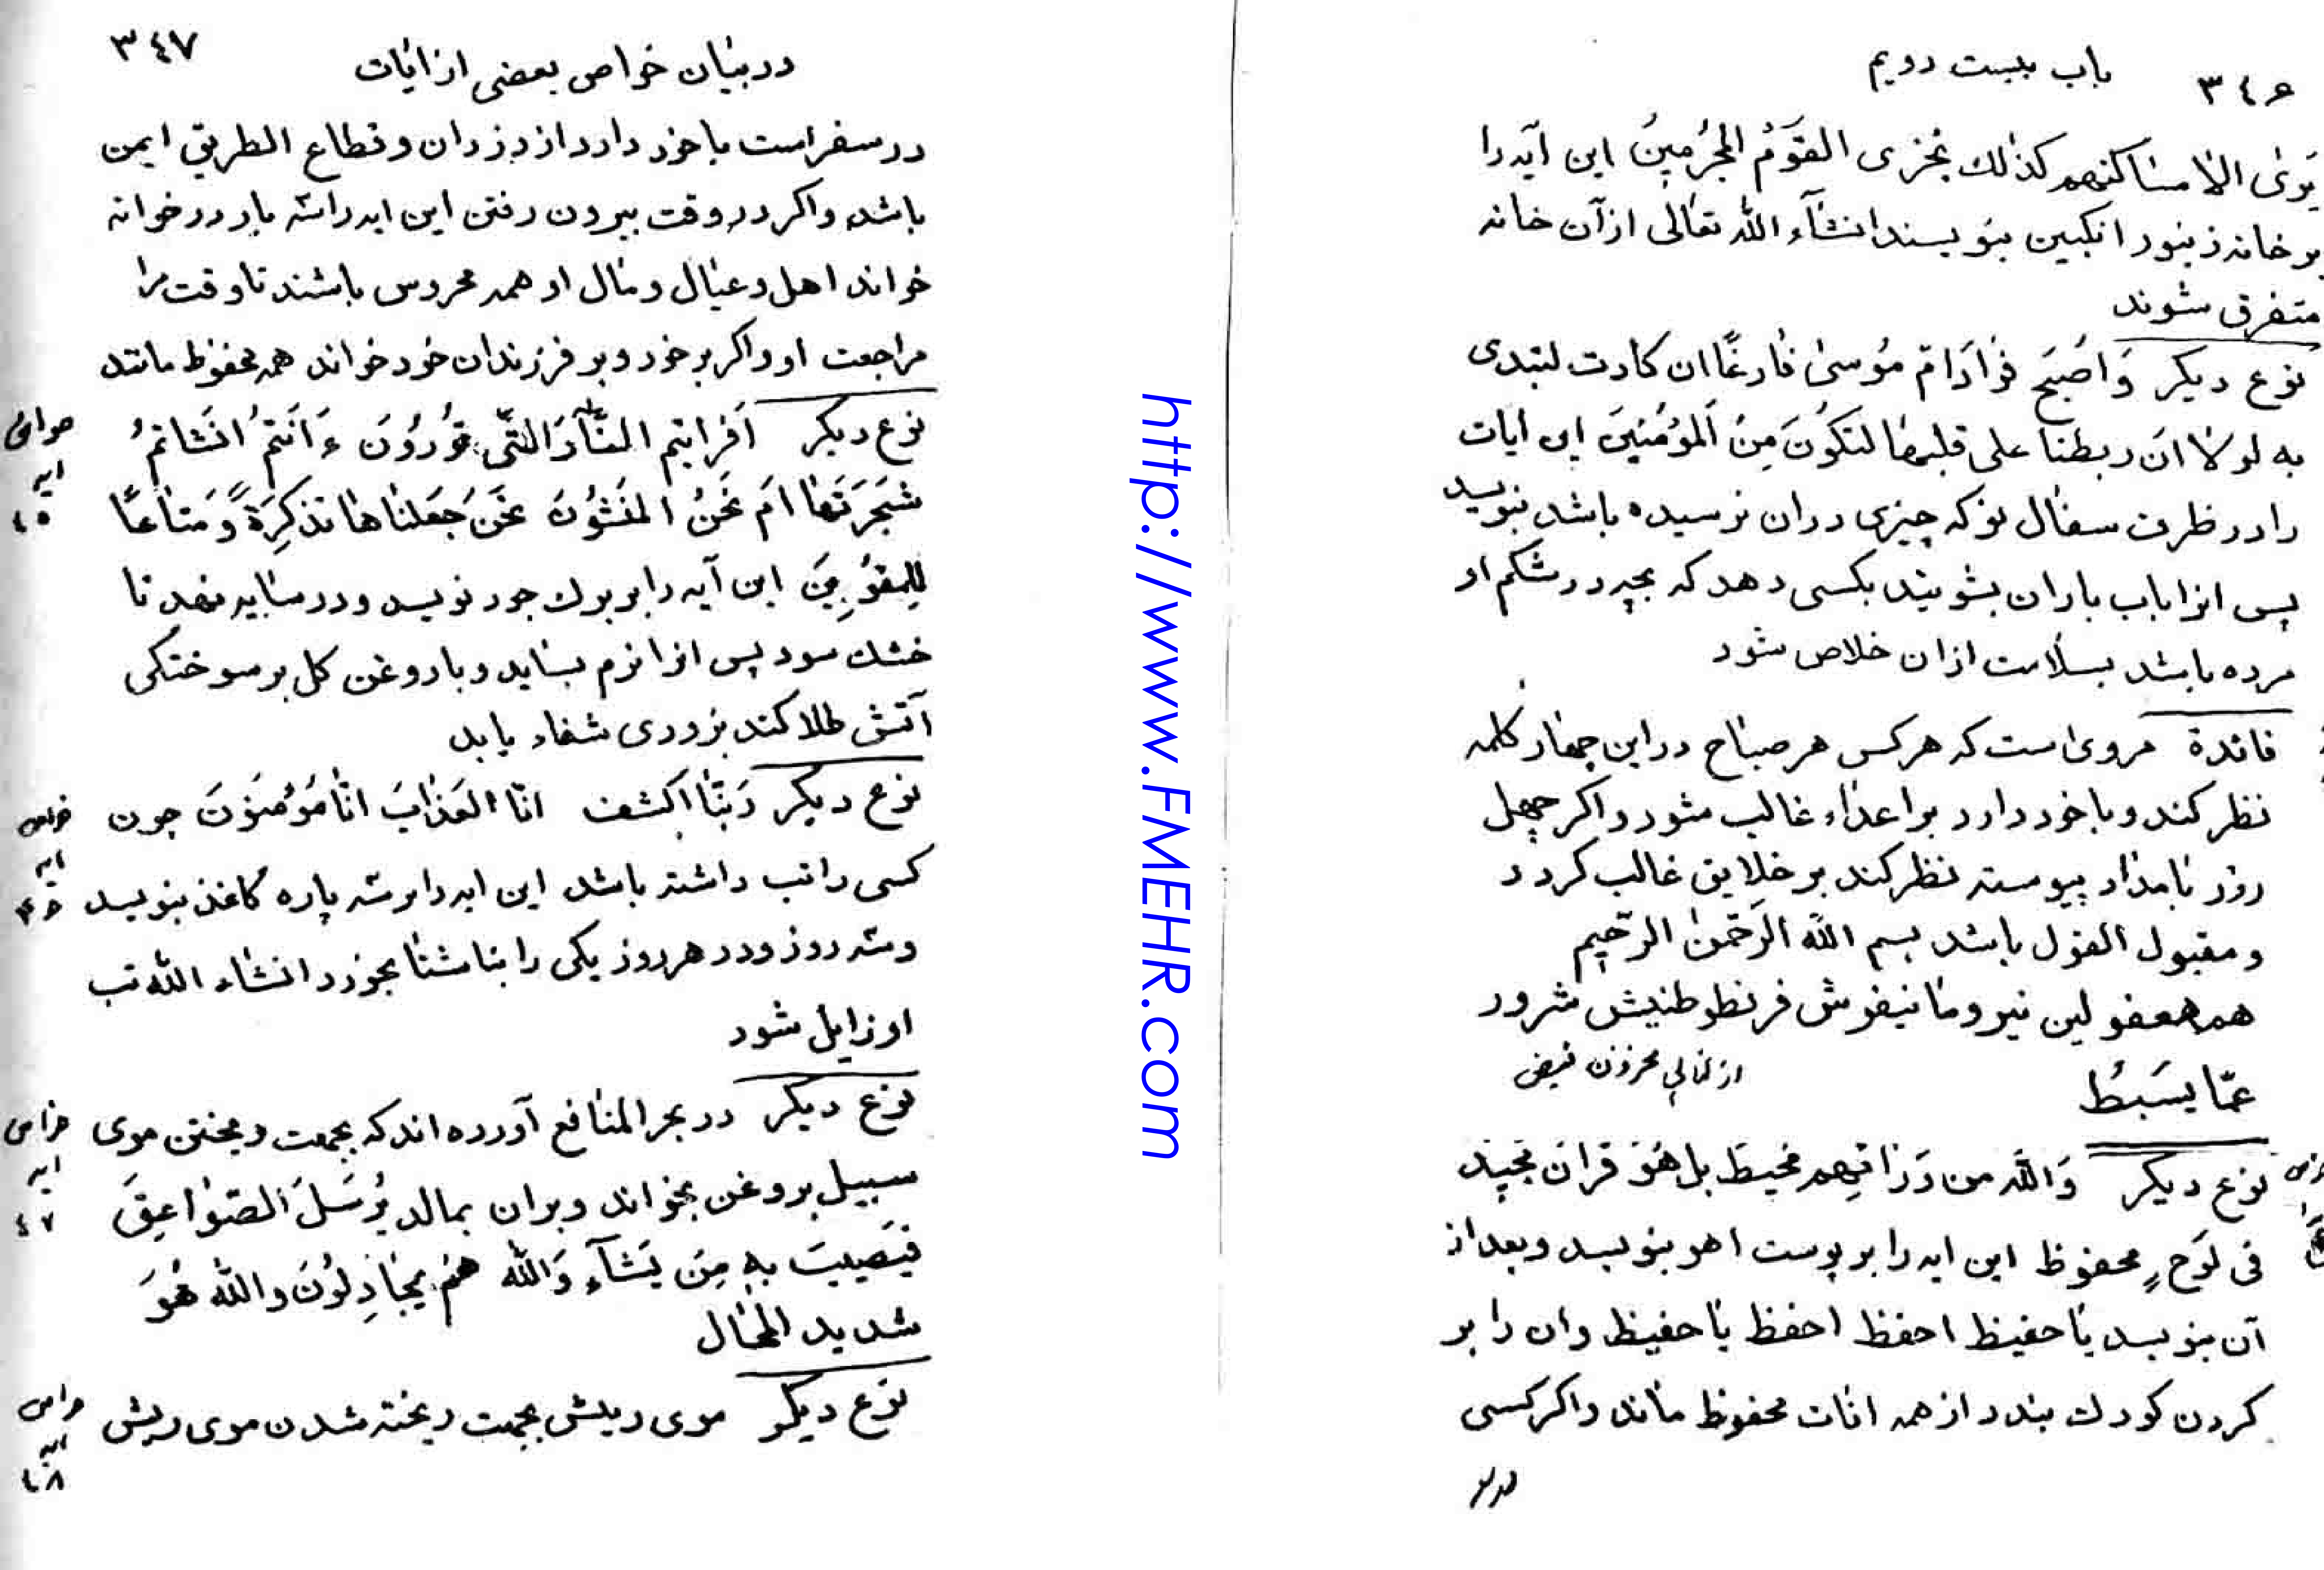 باب بیست دویم ٣٤۶
یری الا مساکنهم کذلك نجزی القوم المجرمین این آیه را
بر خانه زنبور انکبین بنویسند انشآء الله تعالی از آن خانه
متفرق شوند
نوع دیکر وَاَصبَحَ فؤادام مُوسیٰ فارغًا ان کادت لتبدی
به لولا ان ربطنا علی قلبها لتکونَ مِنَ المؤمنینَ این ایات
را در ظرف سفال نو که چیزی دران نرسیده باشد بنوید
پس انرا باب باران بشویند بکسی دهد که بچه در شکم او
مرده باشد بسلامت ازان خلاص شود
فائدة مروی است که هر کس هر صباح در این چهار کلمه
نظر کند و با خود دارد بر اعداء غالب شود و اکر چهل
روز بامداد پیوسته نظر کند بر خلایق غالب کردد
و مقبول القول باشد بسم الله الرحمن الرحیم
هم
شرور
عمّا
از
محزون فیض
نوع دیکر وَالله من وَرٰائهم محیط بل هُوَ قران مجید
فی لَوحٍ محفوظ این ایه را بر پوست اهو بنویسد و بعد از
آن بنویسد یا حفیظ احفظ احفظ یا حفیظ وان را بر
کردن کودك بندد از همه افات محفوظ ماند و اکر کسی
در
در بیان خواص بعضی از ایات ٣٤٧
در سفر است با خود دارد از دزدان و قطاع الطریق ایمن
باشد و اکر در وقت بیرون رفتن این ایه را سه بار در خوانه
خواند اهل و عیال و مال او همه محروس باشند تا وقت مرا
مراجعت او و اکر بر خود و بر فرزندان خود خواند همه محفوظ مانند
نوع دیکر اَفرایتم النّار التّی تُورُونَ ءَاَنتُم انشاتمُ
شجرتها ام نحنُ المنشؤن نحن جعلناها تذکِرَةً وَ متاعًا
للمقوینَ این آیه را بر برك جود نویسد و در سایه نهد تا
خشك سود پس انرا نرم بساید و با روغن کل بر سوختکی
آتش طلا کند بزودی شفاء یابد
نوع دیکر رَبّنا اکشف انّا العَذابَ انّا مُؤمنونَ چون
کسی را تب داشته باشد این ایه را بر سه پاره کاغذ بنویسد
و سه روز و در هر روز یکی را بناشتا بخورد انشاء الله تب
او زایل شود
نوع دیکر در بحر المنافع آورده اند که بجهت ریختن موی
سبیل بر روغن بخواند و بران بمالد یُرسَل الصّواعِقَ
فیصیبَ بهِ مِن یَشآء وَالله هُم یجادِلونَ والله هُوَ
شدید المحال
نوع دیکر موی ریش بجهت ریخته شدن موی ریش
خواص
ایه
٤٥
خواص
ایه
٤۶
خواص
ایه
٤٧
خواص
ایه
٤٨
http://www.FMEHR.com